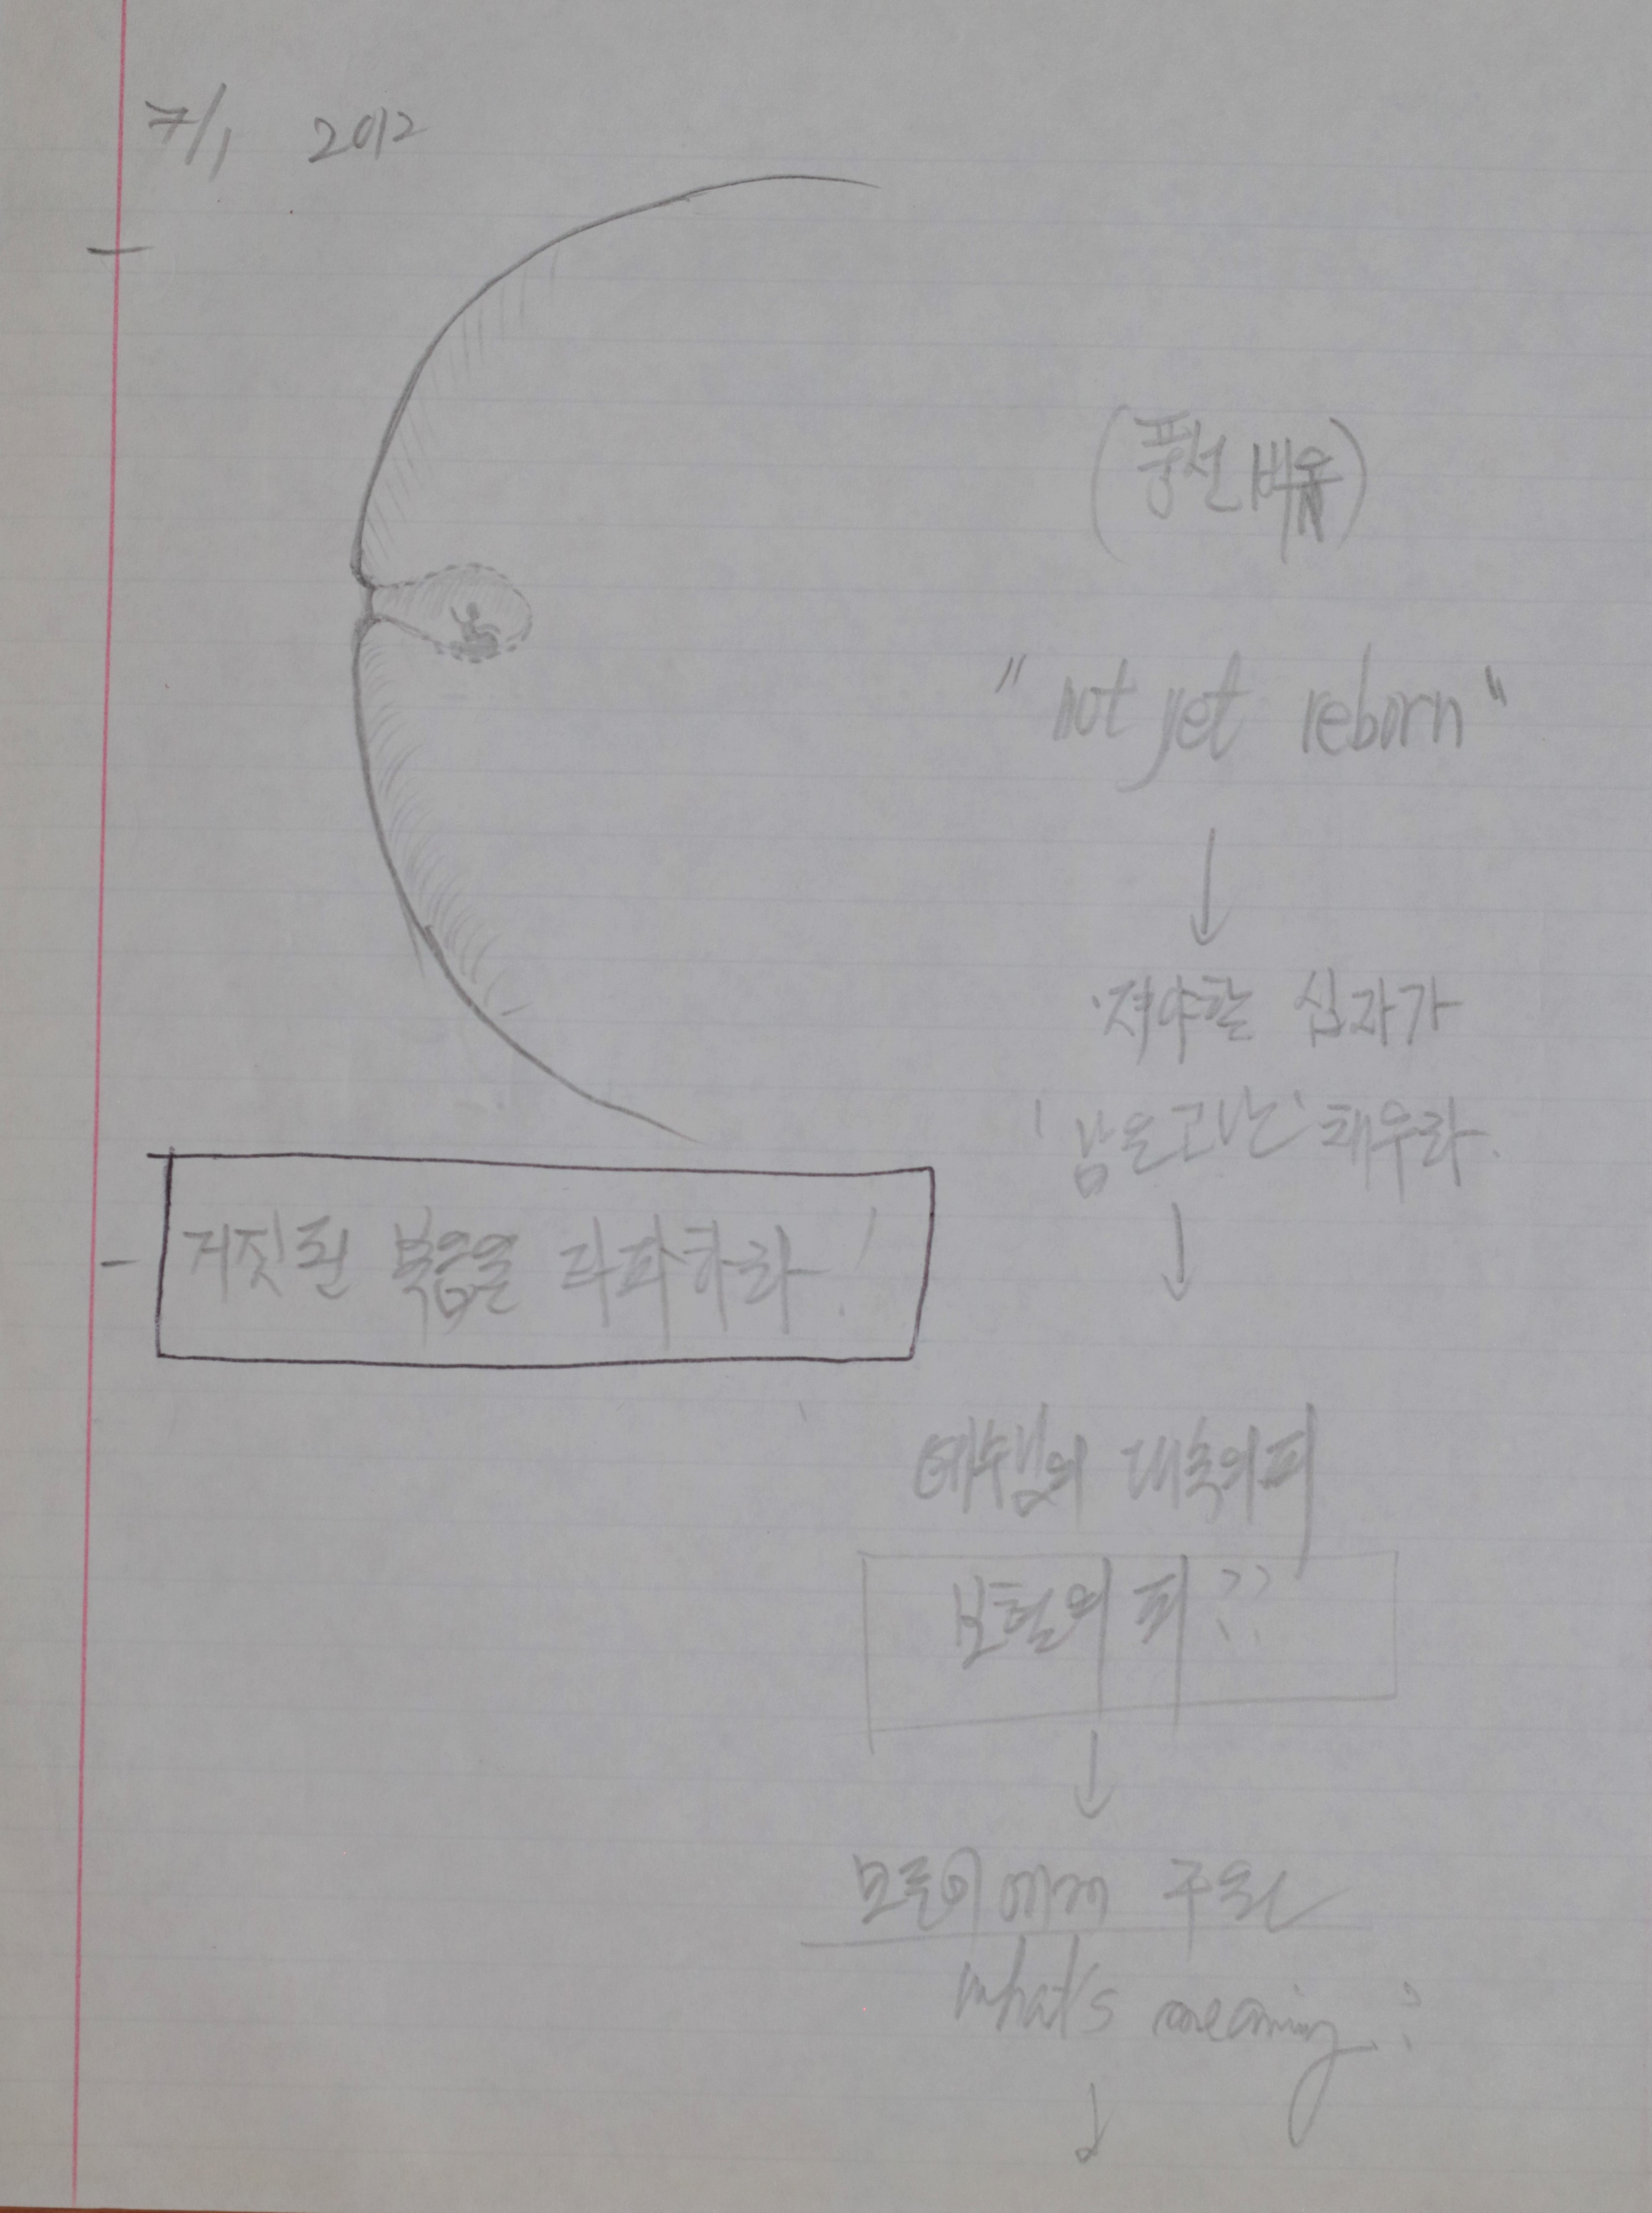 7/1 2012
(풍선 비유)
"not yet reborn"
↓
져야할 십자가
'남은고난' 채우라.
↓
- 거짓된 복음을 타파하라!
예수님의 대속의 피
보혈의 피??
↓
모든이에게 구원
what's meaning?
↓